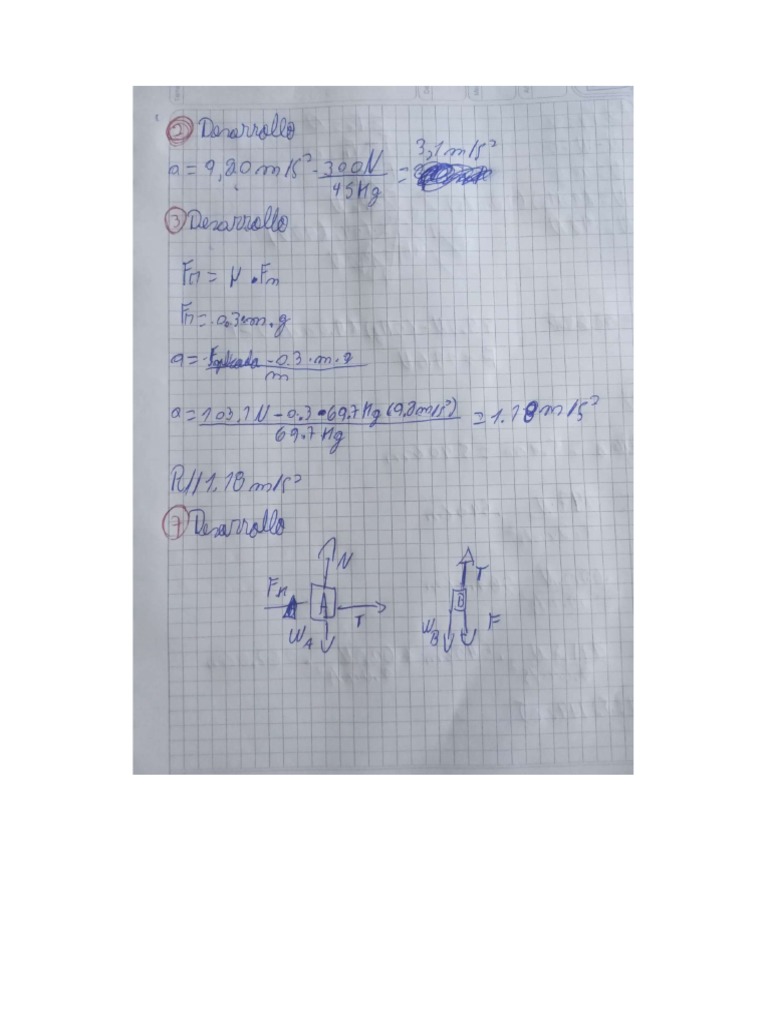 2 Desarrollo
a = 9,80 m/s² - 300N / 45Kg = 3,1 m/s²
3 Desarrollo
Fr = μ • Fn
Fr = 0.3 • m • g
a = Faplicada - 0.3 • m • g / m
a = 103.1 N - 0.3 • 69.7 Kg (9.8 m/s²) / 69.7 Kg = 1.18 m/s²
R// 1.18 m/s²
7 Desarrollo
N T
Fr A B
T F
WA WB